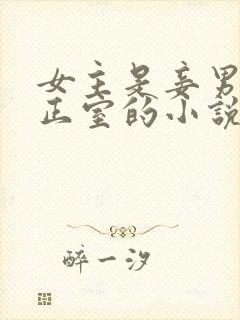 女主是妾男
正室的小說
醉一汐